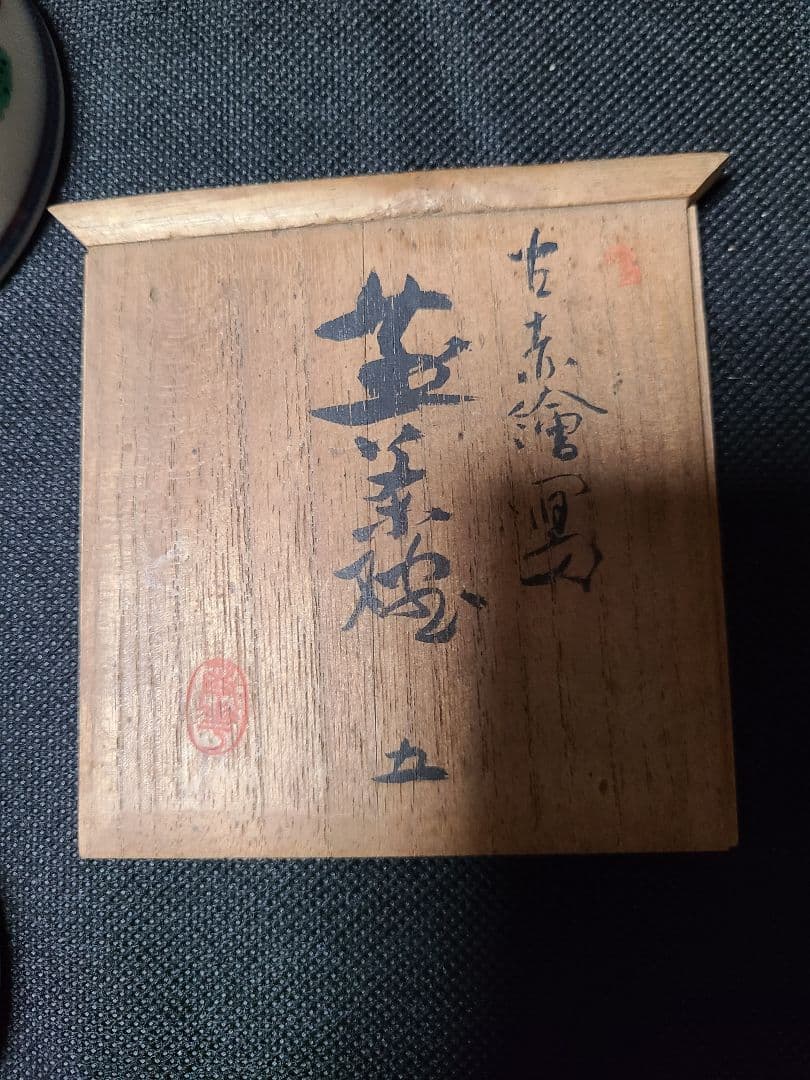 古赤繪寫
蓋茶碗
五